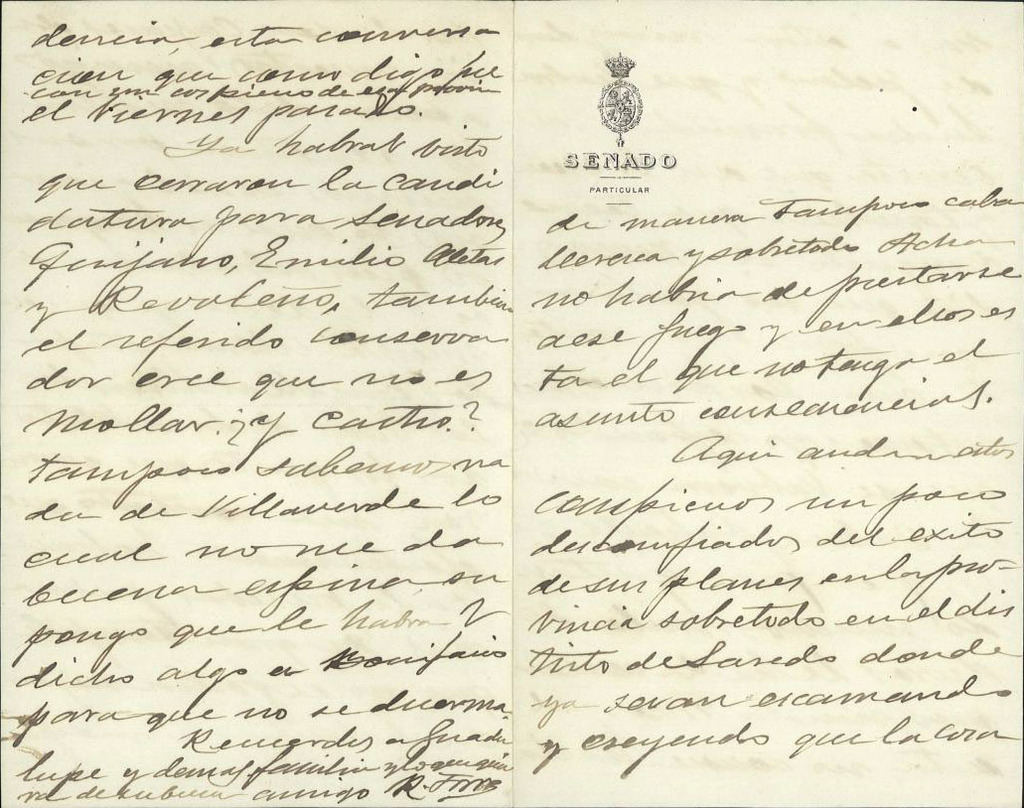 dencia, esta conversa
cion que como digo fue
con un cospieno de esa provin
el viernes pasado.
Ya habrás visto
que cerraron la candi
datura para senadores
Quijano, Emilio
y Revoleño, tambien
el referido conserva
dor cree que no es
Mollar. ¿Y Castro?
tampoco sabemos na
da de Villaverde lo
cual no me da
buena espina, su
pongo que le habrá V
dicho algo a Bonifacio
para que no se duerma.
Recuerdos a Guada
lupe y demas familia y lo que quie
ra de su buen amigo R.
SENADO
PARTICULAR
de manera tampoco caba
llerezca y sobretodo Acha
no habria de prestarse
a ese juego y en ellos es
ta el que no tenga el
asunto consecuencias.
Aqui andan estos
campienos un poco
desconfiados del exito
de sus planes en la pro-
vincia sobretodo en el dis
trito de Laredo donde
ya se van escamando
y creyendo que la cosa